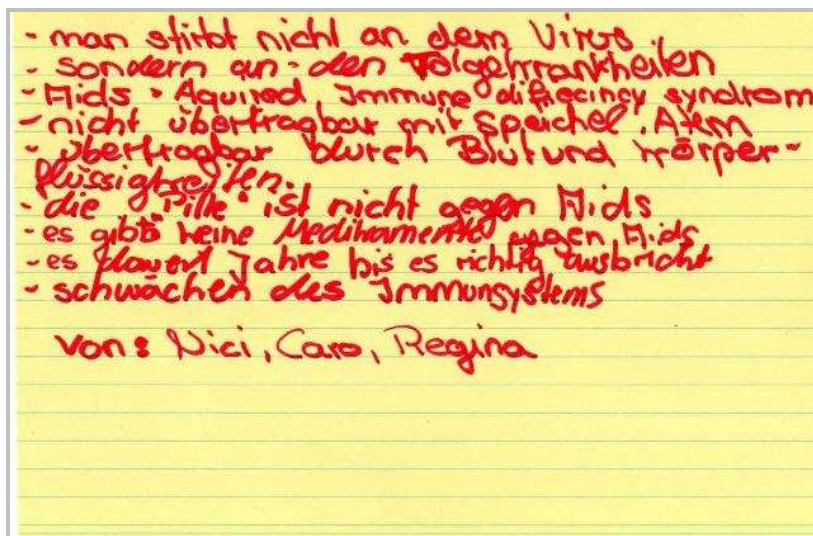 - man stirbt nicht an dem Virus
- sondern an den Folgekrankheiten
- Aids - Aquired Immune difecincy syndrom
- nicht übertragbar mit Speichel, Atem
- übertragbar durch Blut und Körper-
flüssigkeiten.
- die "Pille" ist nicht gegen Aids
- es gibt keine Medikamente gegen Aids
- es dauert Jahre bis es richtig ausbricht
- schwächen des Immunsystems
von: Nici, Caro, Regina